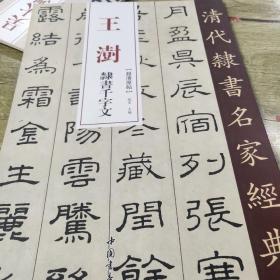 清代隸書名家經典
王澍
隸書千字文
【超清原帖】
月盈昃辰宿列張寒
冬藏閏餘
雲騰
露結為霜金生麗
中國書店